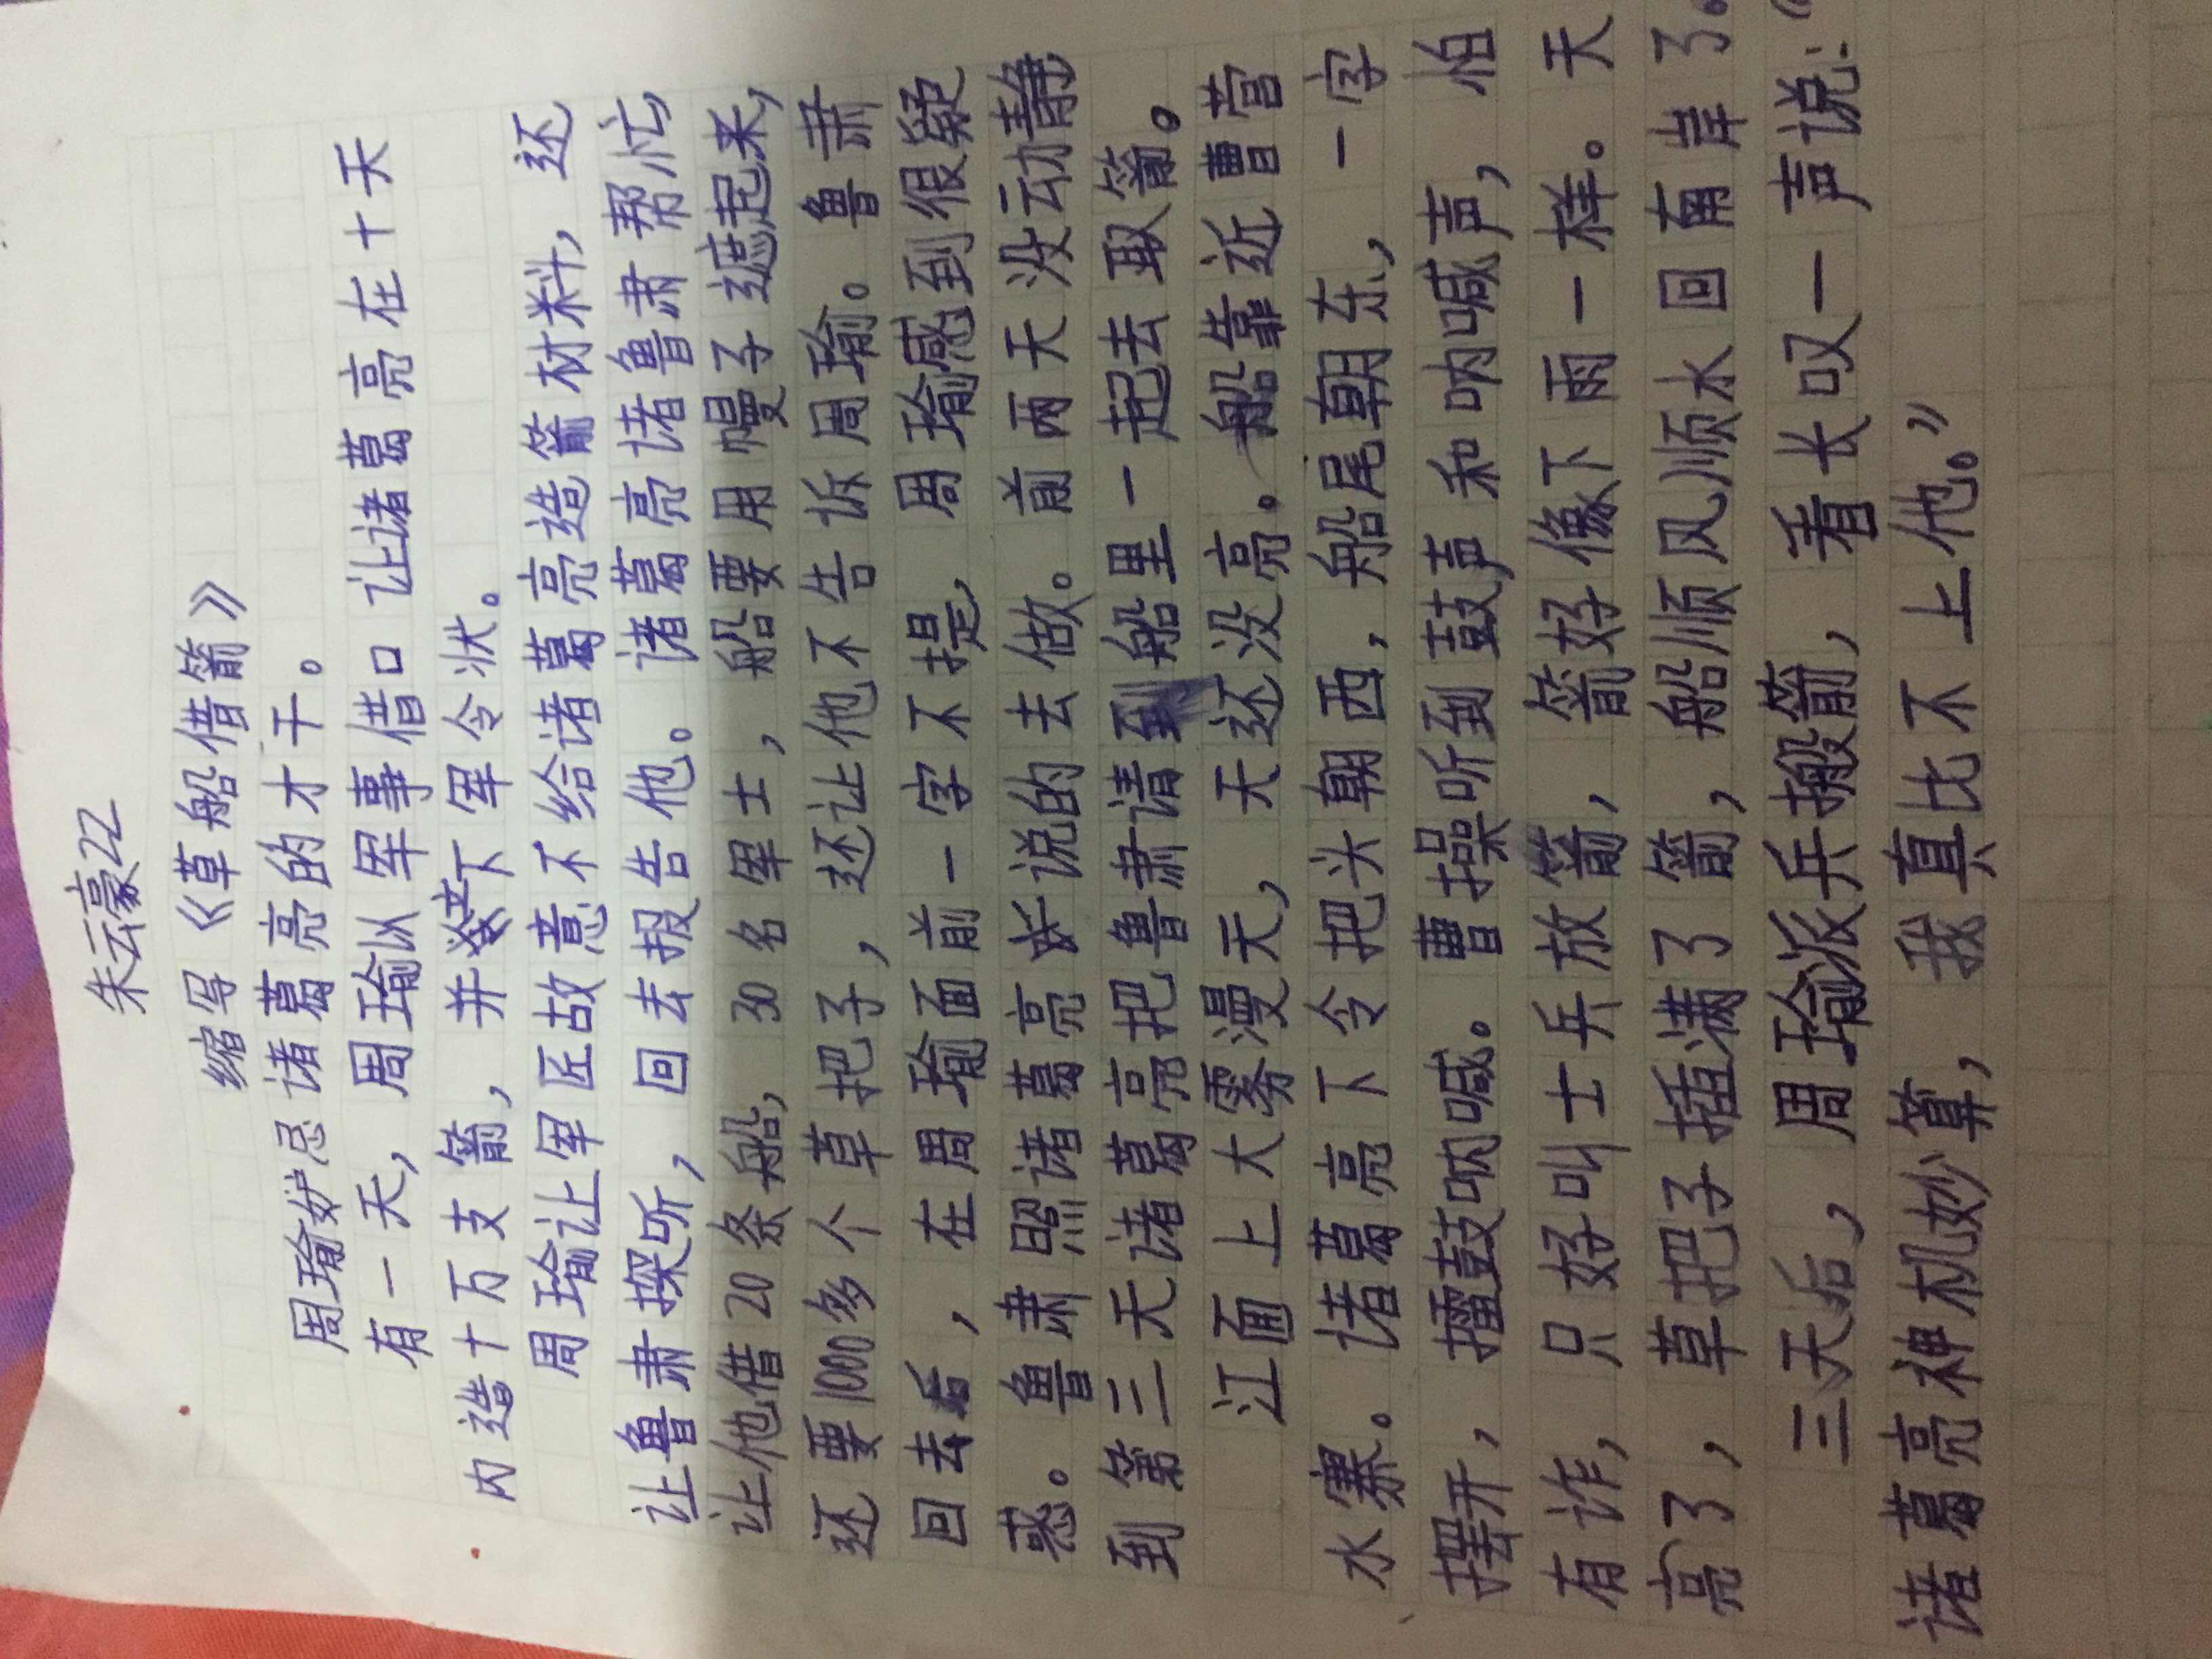 朱云豪22
缩写《草船借箭》
周瑜妒忌诸葛亮的才干。
有一天，周瑜以军事借口让诸葛亮在十天
内造十万支箭，并接下军令状。
周瑜让军匠故意不给诸葛亮造箭材料，还
让鲁肃探听，回去报告他。诸葛亮诸鲁肃帮忙，
让他借20条船，30名军士，船要用幔子遮起来，
还要1000多个草把子，还让他不告诉周瑜。鲁肃
回去后，在周瑜面前一字不提，周瑜感到很疑
惑。鲁肃照诸葛亮说的去做。前两天没动静
到第三天诸葛亮把鲁肃请到船里一起去取箭。
江面上大雾漫天，天还没亮。船靠近曹营
水寨。诸葛亮下令把头朝西，船尾朝东，一字
摆开，擂鼓呐喊。曹操听到鼓声和呐喊声，怕
有诈，只好叫士兵放箭，箭好像下雨一样。天
亮了，草把子插满了箭，船顺风顺水回南岸了。
三天后，周瑜派兵搬箭，看长叹一声说：“
诸葛亮神机妙算，我真比不上他。”